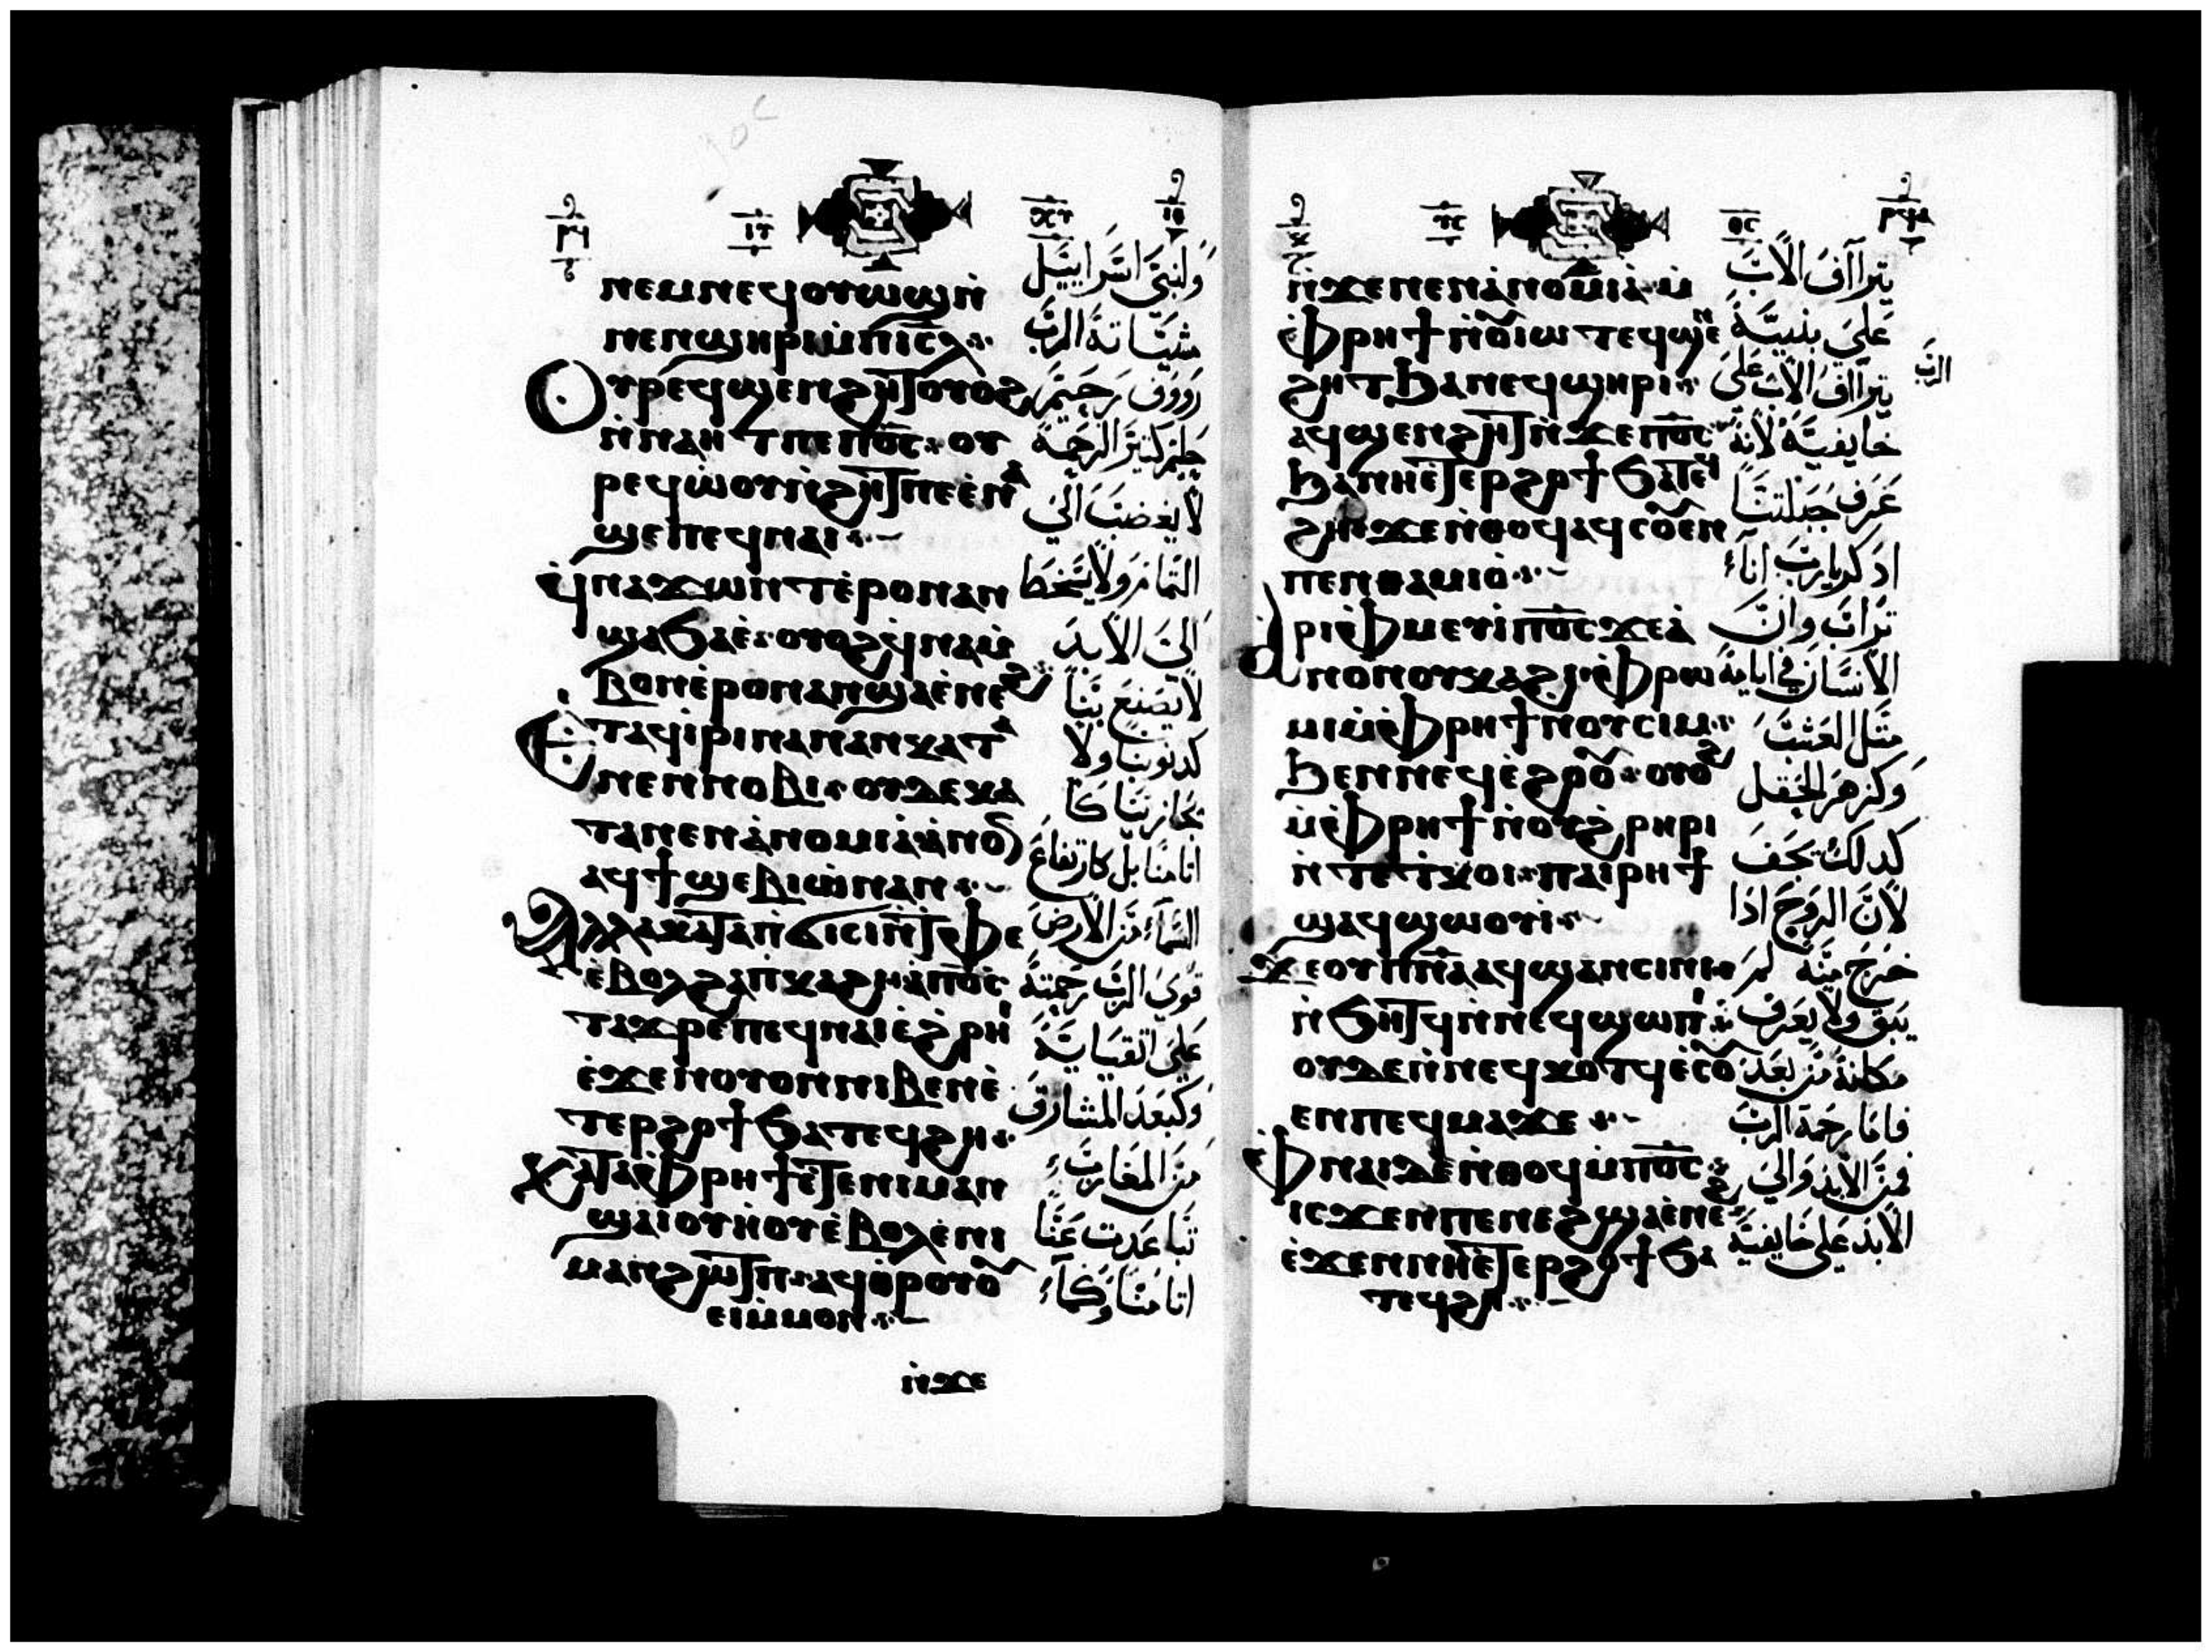 ⲛⲉⲙⲛⲉϥⲟⲩⲱϣⲛ̀
ⲛⲉⲛϣⲏⲣⲓⲙ̀ⲡⲓⲥ̅ⲗ̅
ⲟⲩⲣⲉϥϣⲉⲛϩⲏⲧⲟⲩⲟϩ
ⲛ̀ⲛⲁⲏⲧⲡⲉⲡⲟ̅ⲥ̅ ⲟⲩ
ⲣⲉϥⲱ̀ⲟⲩⲛ̀ϩⲏⲧⲡⲉⲉ̀ⲛⲁ
ϣⲉⲡⲉϥⲛⲁⲓ
ϥ̀ⲛⲁϫⲱⲛⲧⲉ̀ⲣⲟⲛⲁⲛ
ϣⲁϧⲁⲉ̀ ⲟⲩⲟϩϥ̀ⲛⲁⲙ̀
ⲃⲟⲛⲉ̀ⲣⲟⲛⲁⲛϣⲁⲉ̀ⲛⲉϩ
ⲉ̀ⲧⲁϥⲓ̀ⲣⲓⲛⲁⲛⲁⲛⲕⲁⲧⲁ
ⲛⲉⲛⲛⲟⲃⲓ ⲟⲩⲇⲉⲕⲁ
ⲧⲁⲛⲉⲛⲁ̀ⲛⲟⲙⲓⲁ̀ⲙ̀ⲡⲟ
ⲁϥϯϣⲉⲃⲓⲱ̀ⲛⲁⲛ
ⲁⲗⲗⲁⲕⲁⲧⲁⲡ̀ϭⲓⲥⲓⲛ̀ⲧⲉ̀ⲫⲉ
ⲉ̀ⲃⲟⲗϩⲁⲡⲕⲁϩⲓ ⲁ̀ⲡⲟ̅ⲥ̅
ⲧⲁϫⲣⲉⲡⲉϥⲛⲁⲓⲉ̀ϩ̀ⲣⲏⲓ
ⲉ̀ϫⲉⲛⲟⲩⲟⲛⲛⲓⲃⲉⲛⲉ̀
ⲧⲉⲣϩⲟϯϧⲁⲧⲉϥϩⲏ
ⲕⲁⲧⲁⲫ̀ⲣⲏϯⲉ̀ⲧⲉⲛⲓⲙⲁⲛ
ϣⲁⲓⲟⲩⲏⲟⲩⲉ̀ⲃⲟⲗⲉ̀ⲛⲓ
ⲙⲁⲛϩⲱⲧⲡ ⲁϥⲑ̀ⲣⲟⲩⲟ
ⲉⲓⲙ̀ⲙⲟⲛ
ⲛ̀ϫⲉ
ولبني اسراييل
مشيياته الرب
رووف رحيم
جليم كثير الرحمة
لا يغضب الي
التمام ولا يسخط
الي الابد
لا يصنع بنا
كدنوبنا ولا
يجازينا كا
اثامنا بل كارتفاع
السماء من الارض
قوي الرب رحمته
علي اتقيايه
وكبعد المشارق
من المغارب
تباعدت عنا
اثامنا وكما
ⲛ̀ϫⲉⲛⲉⲛⲁ̀ⲛⲟⲙⲓⲁ̀ ⲙ̀
ⲫ̀ⲣⲏϯⲛ̀ⲟⲓⲱⲧⲉϥϣⲉⲛ
ϩⲏⲧϧⲁⲛⲉϥϣⲏⲣⲓ
ⲁϥϣⲉⲛϩⲏⲧⲛ̀ϫⲉⲡⲟ̅ⲥ̅
ϧⲁⲛⲏⲉ̀ⲧⲉⲣϩⲟϯϧⲁⲧⲉϥ
ϩⲏ ϫⲉⲛ̀ⲑⲟϥⲁϥⲥⲟⲉⲛ
ⲡⲉⲛⲑⲁⲙⲓⲟ̀
ⲁⲣⲓⲫ̀ⲙⲉⲩⲓ̀ⲡⲟ̅ⲥ̅ϫⲉⲁ̀
ⲛⲟⲛⲟⲩⲕⲁϩⲓ ⲫ̀ⲣⲱ
ⲙⲓⲙ̀ⲫ̀ⲣⲏϯⲛⲟⲩⲥⲓⲙ
ϧⲉⲛⲛⲉϥⲉ̀ϩⲟⲟ ⲟⲩⲟϩ
ⲙ̀ⲫ̀ⲣⲏϯⲛ̀ⲟⲩϩ̀ⲣⲏⲣⲓ
ⲛ̀ⲧⲉⲧ̀ⲕⲟⲓ ⲡⲁⲓⲣⲏϯ
ϣⲁϥϣⲱⲟⲩⲓ
ϫⲉⲟⲩⲡ̅ⲛ̅ⲁ̅ⲁϥϣⲁⲛⲥⲓⲛⲓ
ⲛ̀ϧⲏⲧϥⲛ̀ⲛⲉϥϣⲱⲡⲓ
ⲟⲩⲇⲉⲛ̀ⲛⲉϥⲕⲟⲧϥⲉ̀ⲥⲟ
ⲉⲛⲡⲉϥⲙⲁϫⲉ
ⲫ̀ⲛⲁⲓⲇⲉⲛ̀ⲑⲟϥⲙ̀ⲡⲟ̅ⲥ̅
ⲓⲥϫⲉⲛⲡⲉⲛⲉϩϣⲁⲉ̀ⲛⲉϩ
ⲉ̀ϫⲉⲛⲛⲏⲉ̀ⲧⲉⲣϩⲟϯϧⲁ
ⲧⲉϥϩⲏ
يتراآف الاب
علي بنيه
يتراآف الاب علي
الرب
خايفيه لانه
عرف جبلتنا
ادكر يارب اناء
تراب وان
الانسان في ايامه
مثل العشب
وكزهر الحقل
كدلك يجف
لان الروح اذا
خرج منه لم
يبق ولا يعرف
مكانه من بعد
فاما رحمة الرب
فمن الابد والي
الابد علي خايفيه